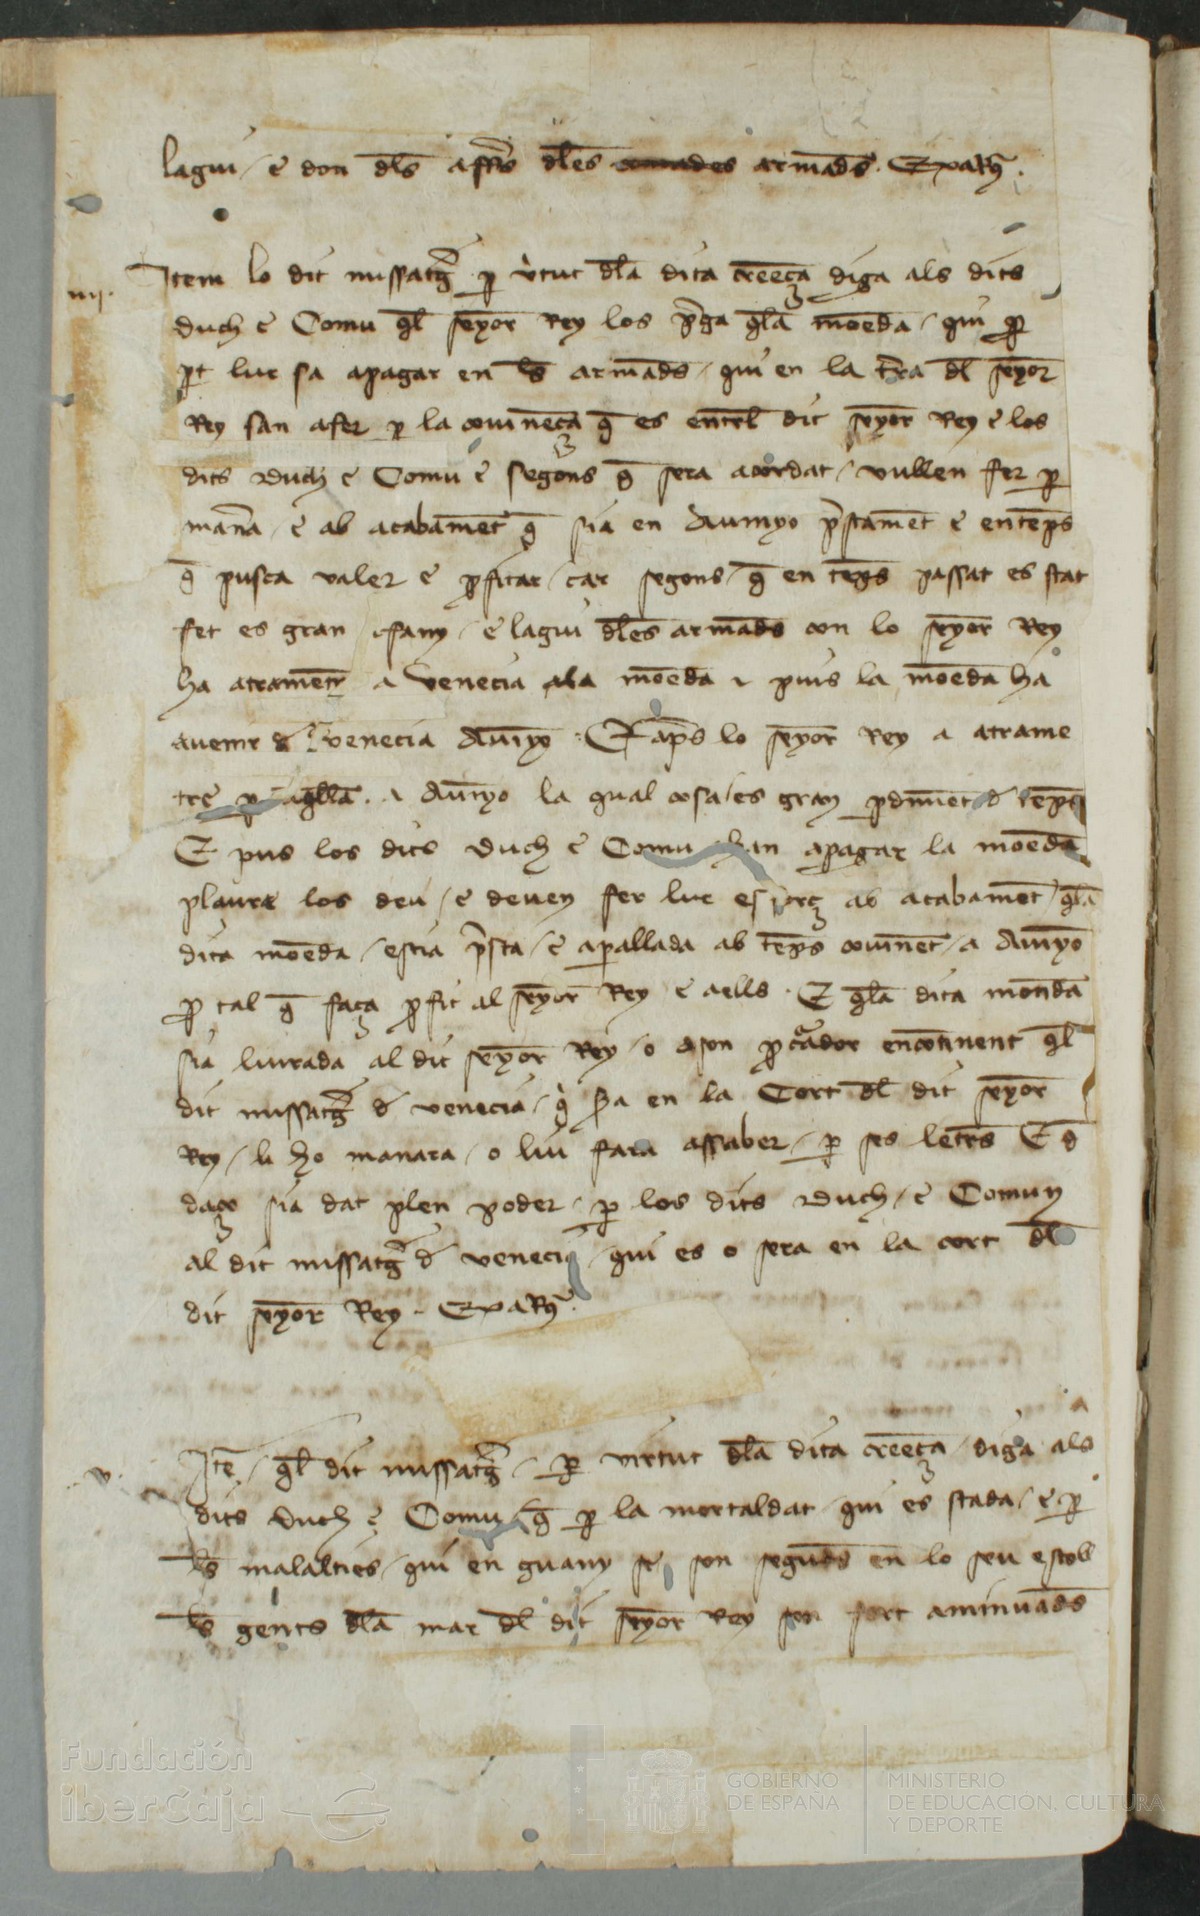 lagui / e don dl̄s aff̄rs dl̄es armād̄s. Exp̄at9.
iiij. Item lo dit missatḡ p̱ v̓tut dl̄a dita crēeça diga als dits
duch e Comu ql̄ seȳor Rey los p̄ga ql̄a mōeda / qui p̱
p̱t lur sa apagar en ls̄ armād̄s / qui en la t̄ra dl̄ seȳor
Rey san afer p̱ la covīneça q̄ es ent̄rl dit seȳor Rey e los
dits Duch e Comu e segons q̄ sera acordat / vullen fer p̱
man̄a / e ab acabamēt q̄ sia en Avinyo p̄stamēt e entēps
q̄ pusca valer e p̱fitar / car segons / q̄ en tēps passat es stat
fet es gran afany / e lagui dl̄es armād̄s con lo seȳor Rey
ha atramētr a Venecia ala mōeda e puis la mōeda ha
avenir d Venecia Avīyo. E ap̄s lo seȳor Rey a atrame
tre p̱ aq̄lla. a Avīyo la qual cosa es gran p̱dimēt d tēps
E pus los dits Duch e Comu han apagar la mōeda
plaura los deu / e deven fer lur esforç ab acabamēt / ql̄a
dita mōeda / estia p̄sta / e apallada ab tēps covīnet / a Avīyo
p̱ tal q̄ faça p̱fit al seȳor Rey e aells. E ql̄a dita moneda
sia liurada al dit seȳor Rey / o ason p̱cᵃador encōtinent ql̄
dit missatḡ d venecia / q̓ s̄a en la Cort dl̄ dit seȳor
Rey / li ho manara / o liu fara assaber / p̱ ses let̄rs E d
daço sia dat plen poder / p̱ los dits Duch / e Comun
al dit missatḡ d venecia / qui es o sera en la cort dl̄
dit seȳor Rey - Exp̄at9.
v. Itē / ql̄ dit missatḡ / p̱ virtut dl̄a dita crēeça / diga als
dits duch e Comu q̄ p̱ la mortaldat / qui es stada / e p̱
ls̄ malalties / qui en guany se son segud̄s en lo seu estoll
ls̄ gents dl̄a mar dl̄ dit seȳor Rey son fort aminvad̄s
Fundación
iberCaja
GOBIERNO
DE ESPAÑA
MINISTERIO
DE EDUCACIÓN, CULTURA
Y DEPORTE